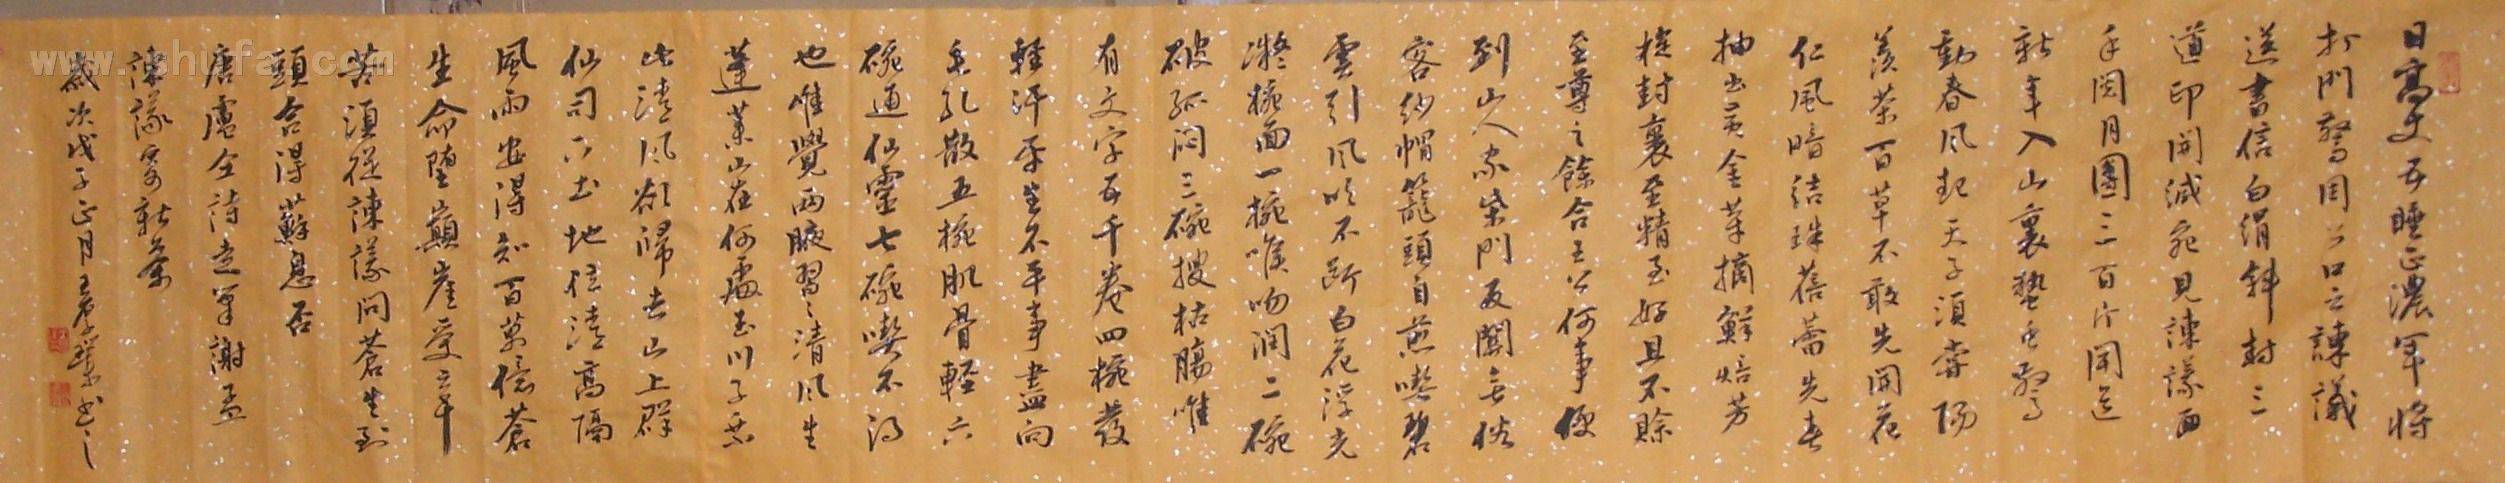 日高丈五睡正濃軍將
打門驚周公口云諫議
送書信白絹斜封三
道印開緘宛見諫議面
手閱月團三百片聞道
新年入山裏蟄虫驚
動春風起天子須嘗陽
羨茶百草不敢先開花
仁風暗結珠蓓蕾先春
抽出黃金芽摘鮮焙芳
旋封裹至精至好且不賒
至尊之餘合王公何事便
到山人家柴門反關無俗
客紗帽籠頭自煎喫碧
雲引風吹不斷白花浮光
凝椀面一椀喉吻潤二碗
破孤悶三碗搜枯腸唯
有文字五千卷四椀發
輕汗平生不平事盡向
毛孔散五椀肌骨輕六
碗通仙靈七碗喫不得
也唯覺兩腋習習清風生
蓬萊山在何處玉川子乘
此清風欲歸去山上群
仙司下土地位清高隔
風雨安得知百萬億蒼
生命墮巔崖受辛
苦須從諫議問蒼生到
頭合得蘇息否
唐盧仝詩走筆謝孟
諫議寄新茶
歲次戊子正月王學書之
www.shufa.com